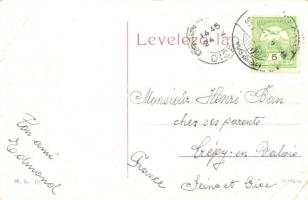 Levelező-lap
5
Monsieur Henri Ban
chez ses parents
Crépy-en Valois
Seine et Oise
France
Ton ami
Edmond